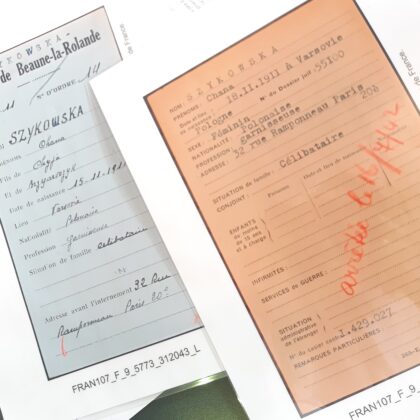 SZYKOWSKA
de Beaune-la-Rolande
N° D'ORDRE 11
11
SZYKOWSKA
Chana
Fils de
Et
Date de naissance 15.11.1911
Lieu Varsovie
Nationalité Polonaise
Profession
Situation de famille célibataire
Adresse avant l'internement 32 Rue
Ramponneau Paris 20e
FRAN107_F_9_5773_312043_L
de France.
NOM: SZYKOWSKA
PRÉNOMS: Chana
Date et lieu de naissance: 18.11.1911 à Varsovie
Pologne N° du Dossier juif 55100
SEXE: Féminin
NATIONALITÉ: Polonaise
PROFESSION: garnisseuse
ADRESSE: 32 rue Ramponneau Paris 20è
SITUATION de famille: Célibataire
CONJOINT: Prénoms
ENFANTS
de moins
de 15 ans
et à charge
arrêtée le 16/7/42
INFIRMITÉS:
SERVICES DE GUERRE:
SITUATION
administrative
de l'étranger
N° du
1.429.027
REMARQUES PARTICULIÈRES
FRAN107_F_9
de France.